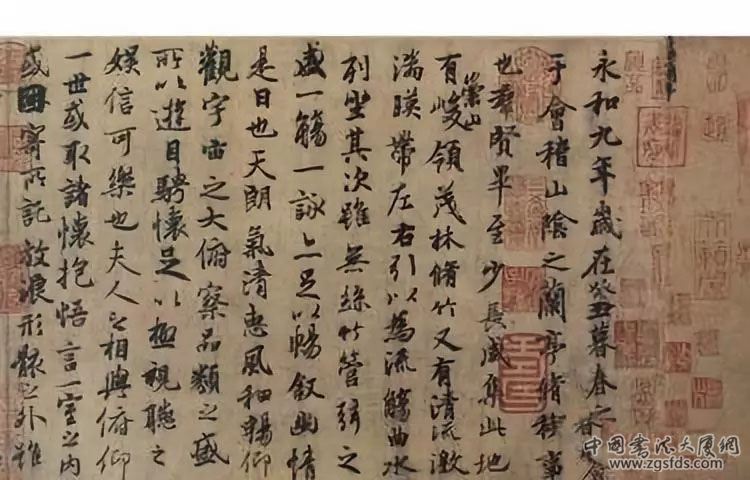 永和九年歲在癸丑暮春之初會
于會稽山陰之蘭亭脩稧事
也群賢畢至少長咸集此地
有崇山峻領茂林脩竹又有清流激
湍暎帶左右引以為流觴曲水
列坐其次雖無絲竹管弦之
盛一觴一詠亦足以暢敘幽情
是日也天朗氣清惠風和暢仰
觀宇宙之大俯察品類之盛
所以遊目騁懷足以極視聽之
娛信可樂也夫人之相與俯仰
一世或取諸懷抱悟言一室之內
或因寄所託放浪形骸之外雖
中国书法大厦網
www.zgsfds.com